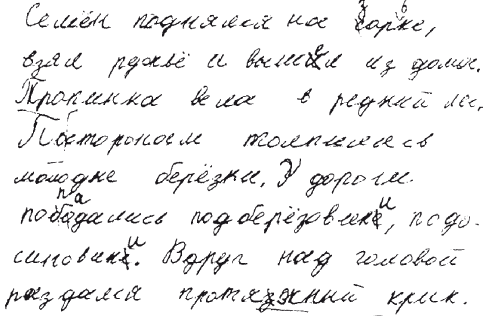 Семён поднялся на зорьке,
взял ружьё и вышел из дома.
Тропинка вела в редкий лес.
По сторонам толпились
молодые берёзки. У дороги
попадались подберёзовики, подо-
синовики. Вдруг над головой
раздался протяжный крик.